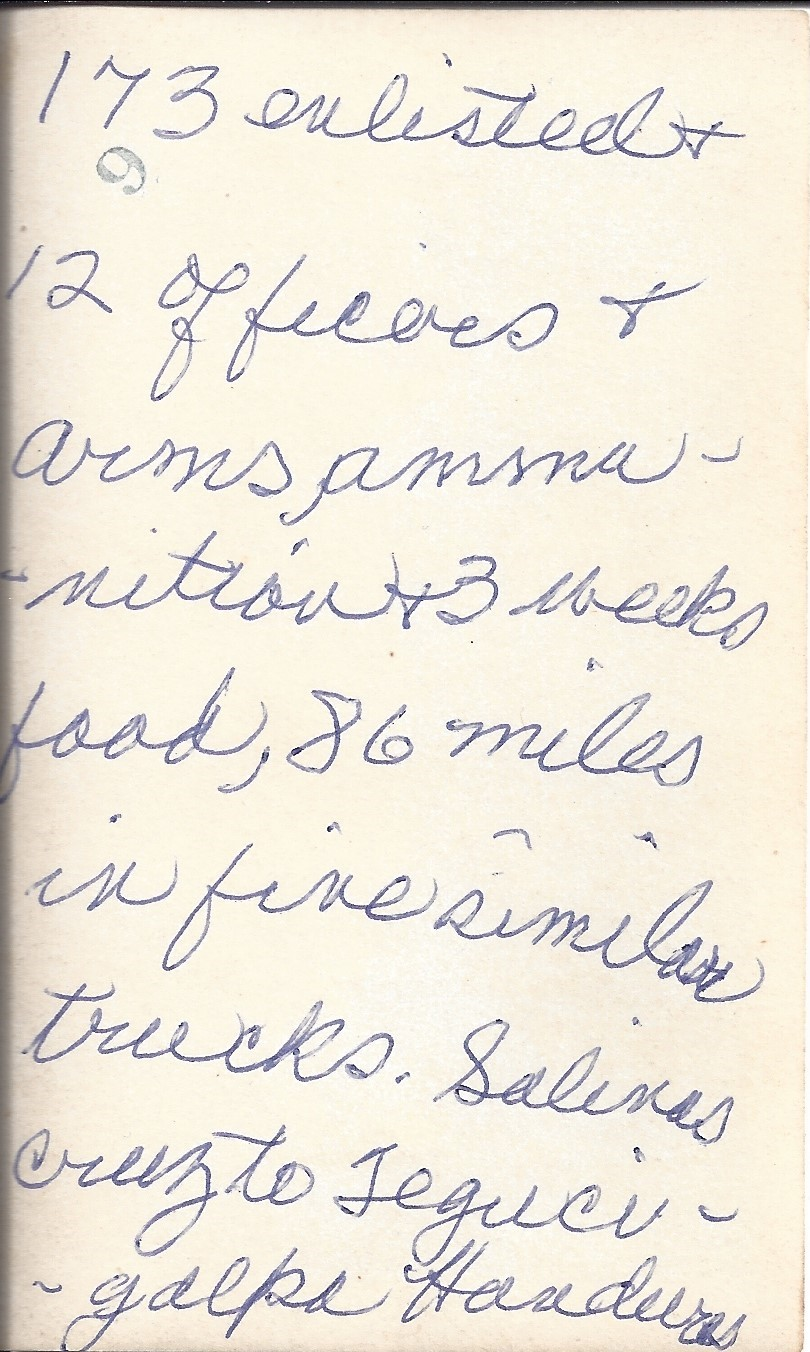 173 enlisted &
9
12 Officers &
arms, ammu-
-nition & 3 weeks
food, 86 miles
in five similar
trucks. Salinas
cruz to Teguci-
-galpa Honduras